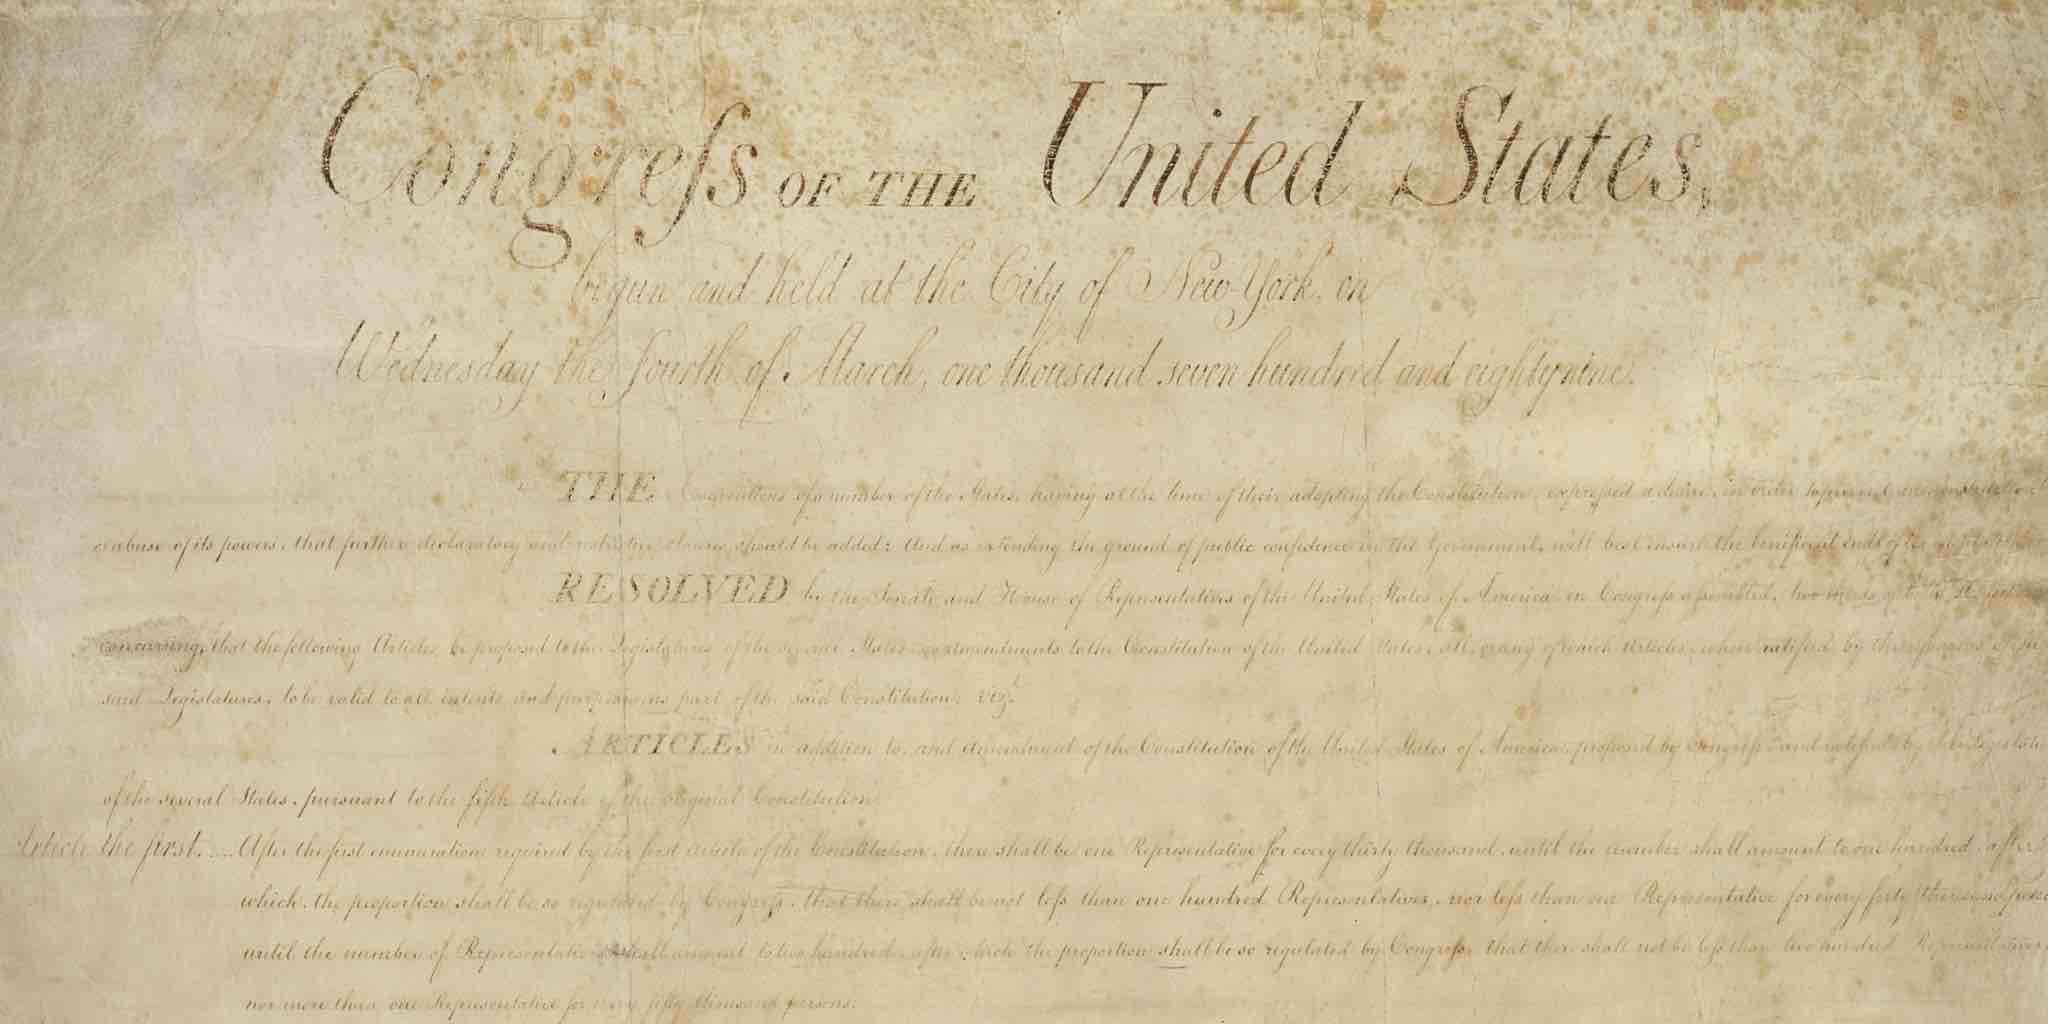 Congreſs OF THE United States,
begun and held at the City of New-York, on
Wednesday the fourth of March, one thousand seven hundred and eighty nine.
THE Conventions of a number of the States, having at the time of their adopting the Constitution, expressed a desire, in order to prevent misconstruction
or abuse of its powers, that further declaratory and restrictive clauses should be added: And as extending the ground of public confidence in the Government, will best ensure the beneficent ends of its
RESOLVED by the Senate and House of Representatives of the United States of America in Congreſs aſsembled, two thirds of both Houses
concurring, that the following Articles be proposed to the Legislatures of the several States, as amendments to the Constitution of the United States, all, or any of which Articles, when ratified by three fourths of the
said Legislatures, to be valid to all intents and purposes, as part of the said Constitution; viz.t
ARTICLES in addition to, and Amendment of the Constitution of the United States of America, proposed by Congreſs, and ratified by the Legislatures
of the several States, pursuant to the fifth Article of the original Constitution.
Article the first. .... After the first enumeration required by the first Article of the Constitution, there shall be one Representative for every thirty thousand, until the number shall amount to one hundred, after
which, the proportion shall be so regulated by Congreſs, that there shall be not leſs than one hundred Representatives, nor leſs than one Representative for every forty thousand persons,
until the number of Representatives shall amount to two hundred, after which the proportion shall be so regulated by Congreſs, that there shall not be leſs than two hundred Representatives,
nor more than one Representative for every fifty thousand persons.